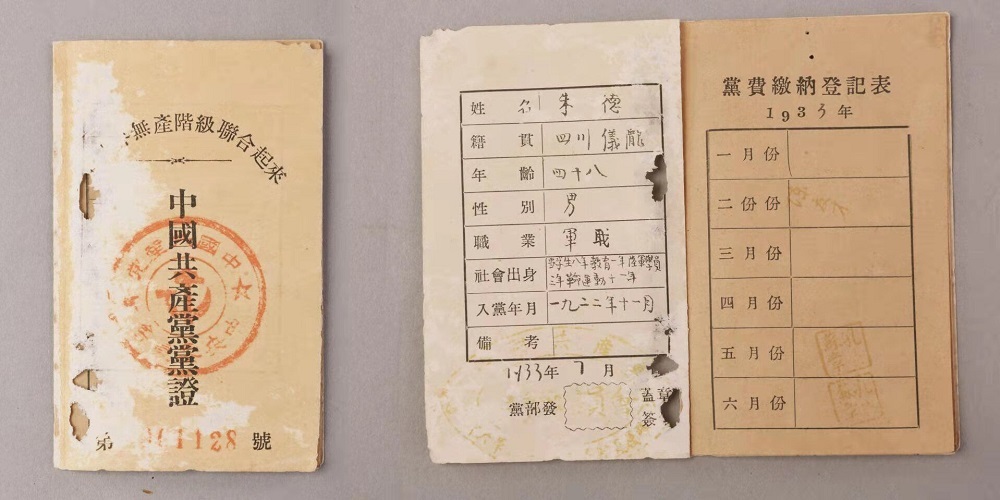 無產階級聯合起來
中國共產黨黨證
第 1128 號
姓名 朱德
籍貫 四川儀隴
年齡 四十八
性別 男
職業 軍職
社會出身
入黨年月 一九二二年十一月
備考
1933年7月
黨部發
蓋章
簽
黨費繳納登記表
1933年
一月份
二份份
三月份
四月份
五月份
六月份